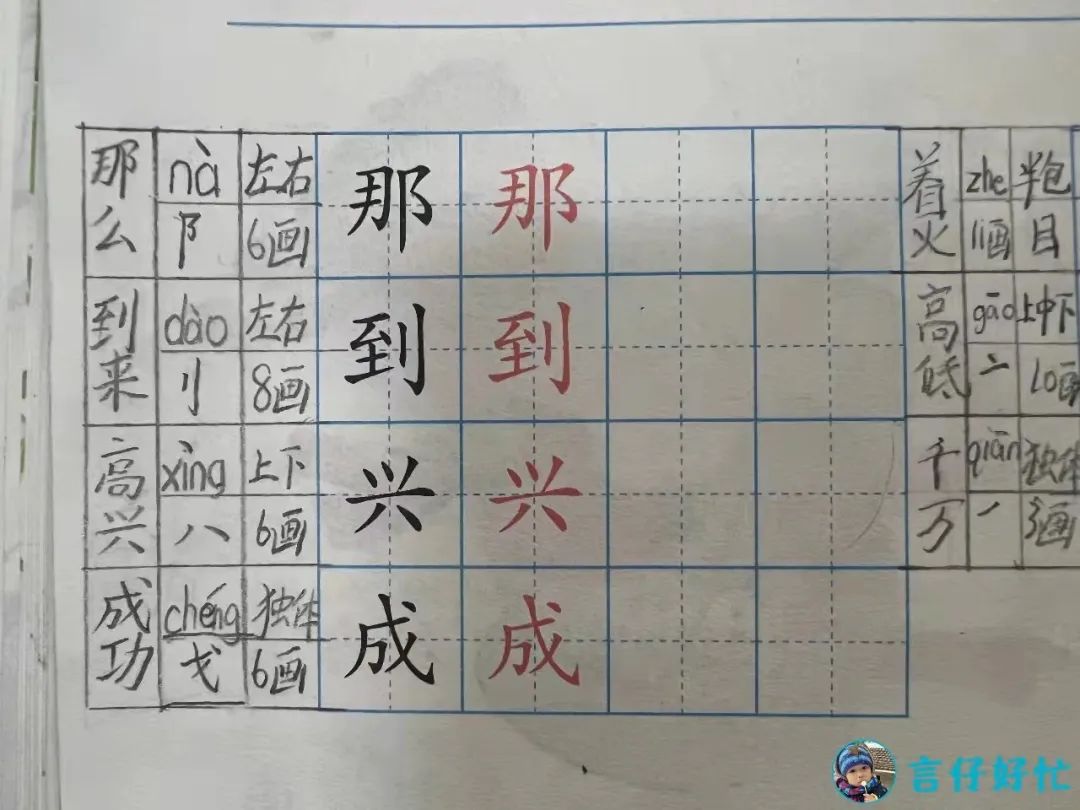 那么 nà 左右 那 那 着火 zhe 半包
阝 6画 11画 目
到来 dào 左右 到 到 高低 gāo 上中下
刂 8画 亠 10画
高兴 xìng 上下 兴 兴 千万 qiān 独体
八 6画 丿 3画
成功 chéng 独体 成 成
戈 6画
言仔好忙